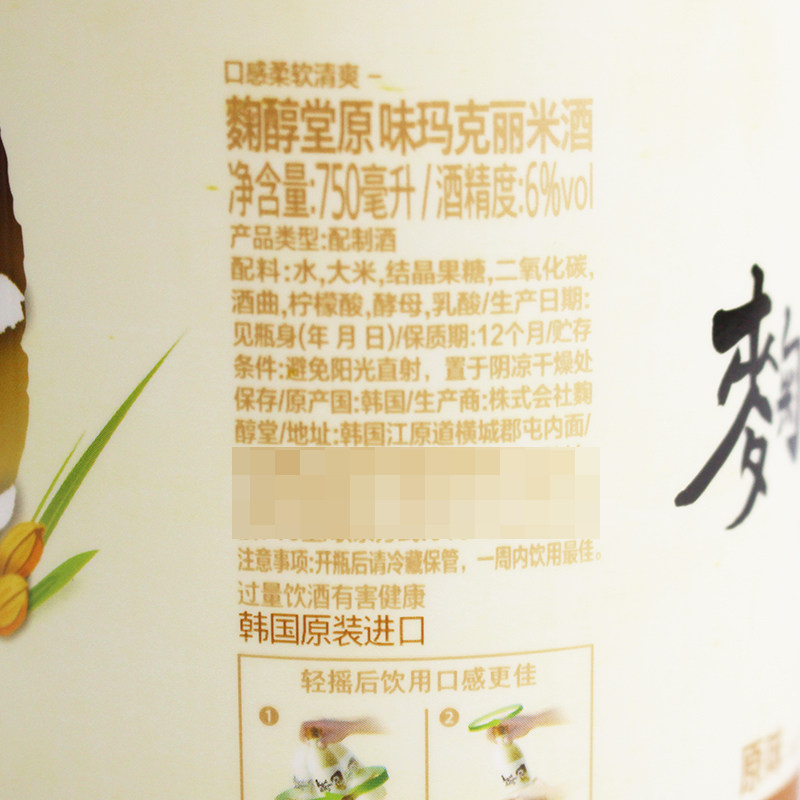 口感柔软清爽 –
麴醇堂原味玛克丽米酒
净含量:750毫升/酒精度:6%vol
产品类型:配制酒
配料:水,大米,结晶果糖,二氧化碳,
酒曲,柠檬酸,酵母,乳酸/生产日期:
见瓶身(年 月 日)/保质期:12个月/贮存
条件:避免阳光直射，置于阴凉干燥处
保存/原产国:韩国/生产商:株式会社麴
醇堂/地址:韩国江原道横城郡屯内面/
注意事项:开瓶后请冷藏保管，一周内饮用最佳。
过量饮酒有害健康
韩国原装进口
轻摇后饮用口感更佳
1 2
麴
原味